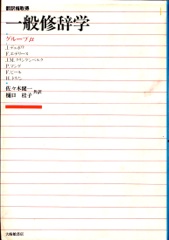 翻訳権取得
一般修辞学
グループμ
J.デュボワ
F.エデリーヌ
J.M.クランケンベルク
P.マンゲ
F.ピール
H.トリノン
佐々木健一
樋口桂子
共訳
大修館書店